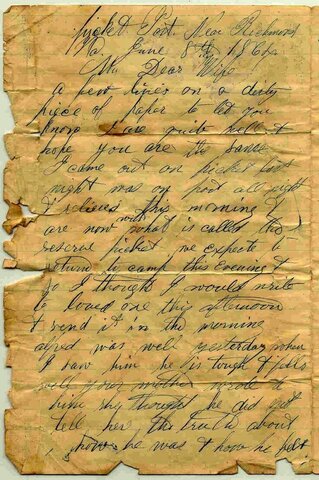 picket Post. Near Richmond
Va June 8th 1862
My Dear Wife
a few lines on a dirty
piece of paper to let you
know I are quite well &
hope you are the same
I came out on picket last
night was on post all night
& relieved this morning I
are now with what is called the
reserve picket we expecte to
return to camp this evening &
so I thought I would write
to loved one this afternoon
& send it in the morning
alfred was well yesterday when
I saw him he is tough &
well your mother wrote to
him she thought he did not
tell her the truth about
how he was & how he felt